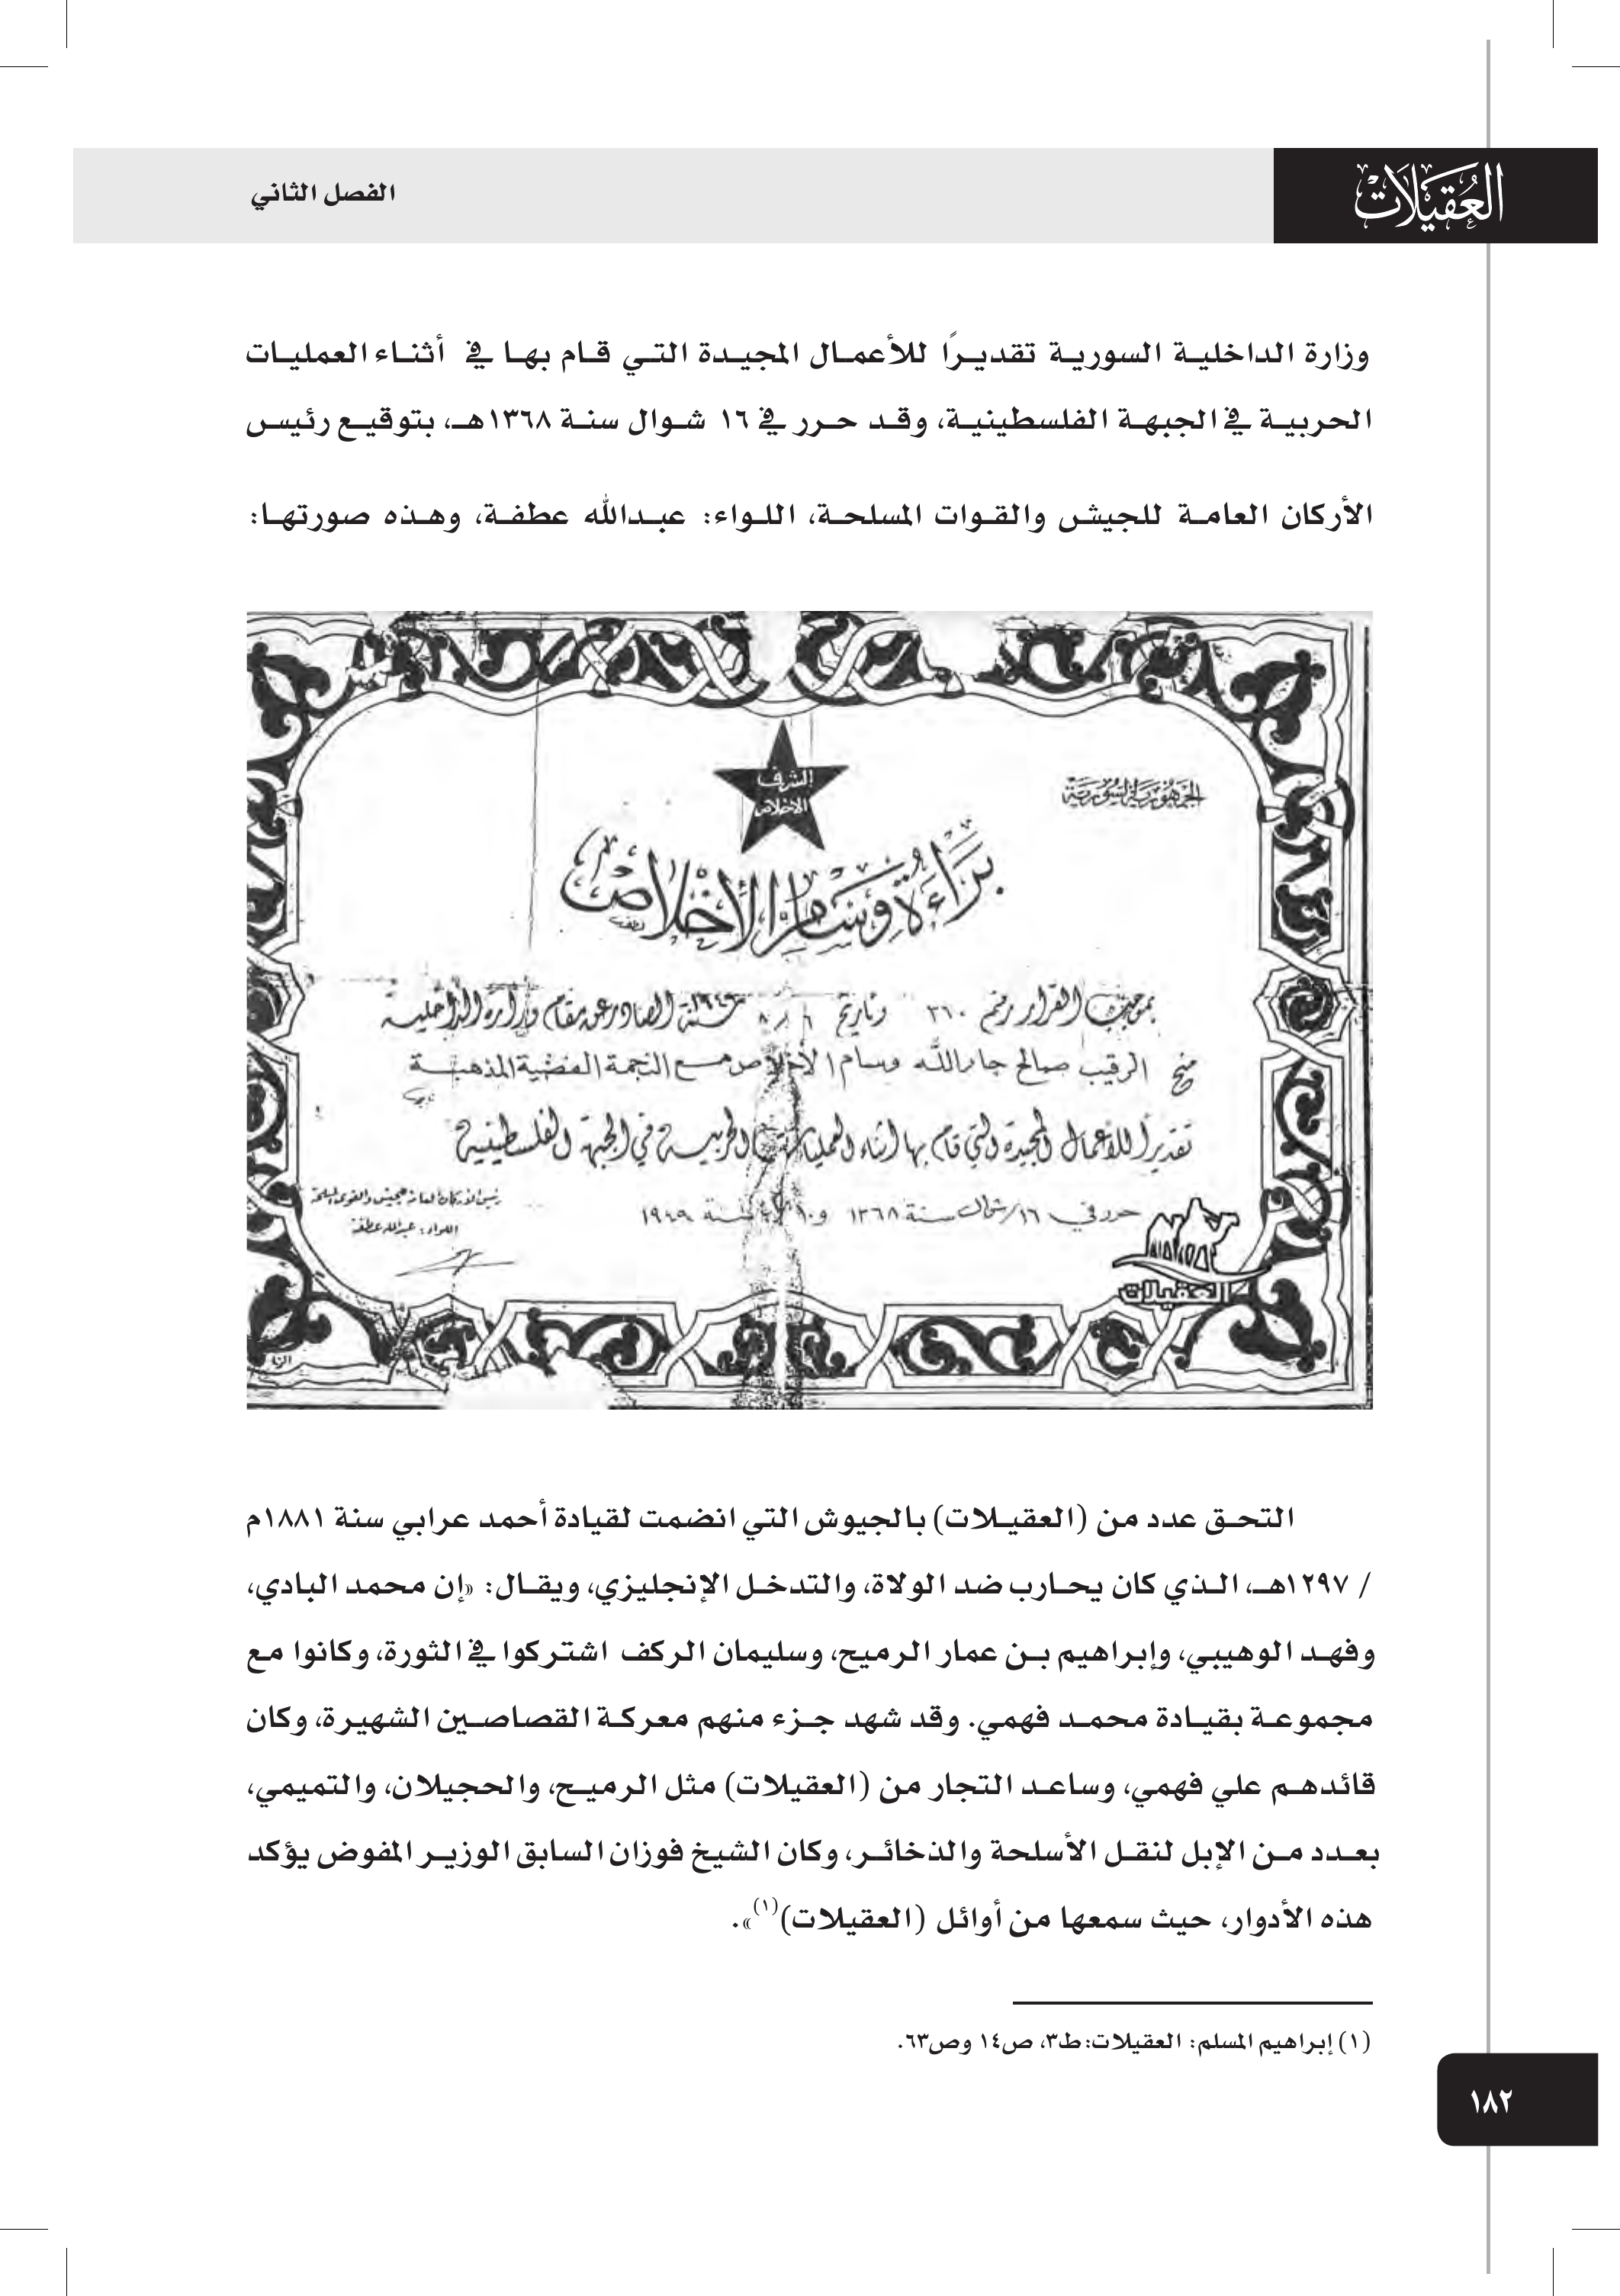 العُقيلات
الفصل الثاني
وزارة الداخلية السورية تقديرًا للأعمال المجيدة التي قام بها في أثناء العمليات
الحربية في الجبهة الفلسطينية، وقد حرر في ١٦ شوال سنة ١٣٦٨هـ، بتوقيع رئيس
الأركان العامة للجيش والقوات المسلحة، اللواء: عبدالله عطفة، وهذه صورتها:
الشرف
الاخلاص
الجمهورية السورية
براءة وسام الإخلاص
بموجب القرار رقم ٣٦٠ وتاريخ ٦ / ٨ سنة ١٩٤٩ الصادر عن مقام وزارة الداخلية
منح الرقيب صالح جارالله وسام الاخلاص مع النجمة الفضية المذهبة
تقديراً للأعمال المجيدة التي قام بها اثناء العمليات الحربية في الجبهة الفلسطينية
حرر في ١٦/شوال سنة ١٣٦٨ و ١٠ سنة ١٩٤٩
رئيس الاركان العامة للجيش والقوى المسلحة
اللواء: عبدالله عطفة
العقيلات
التحق عدد من (العقيلات) بالجيوش التي انضمت لقيادة أحمد عرابي سنة ١٨٨١م
/ ١٢٩٧هـ، الذي كان يحارب ضد الولاة، والتدخل الإنجليزي، ويقال: «إن محمد البادي،
وفهد الوهيبي، وإبراهيم بن عمار الرميح، وسليمان الركف اشتركوا في الثورة، وكانوا مع
مجموعة بقيادة محمد فهمي. وقد شهد جزء منهم معركة القصاصين الشهيرة، وكان
قائدهم علي فهمي، وساعد التجار من (العقيلات) مثل الرميح، والحجيلان، والتميمي،
بعدد من الإبل لنقل الأسلحة والذخائر، وكان الشيخ فوزان السابق الوزير المفوض يؤكد
هذه الأدوار، حيث سمعها من أوائل (العقيلات)(١)».
(١) إبراهيم المسلم: العقيلات: ط٣، ص١٤ وص٦٣.
١٨٢